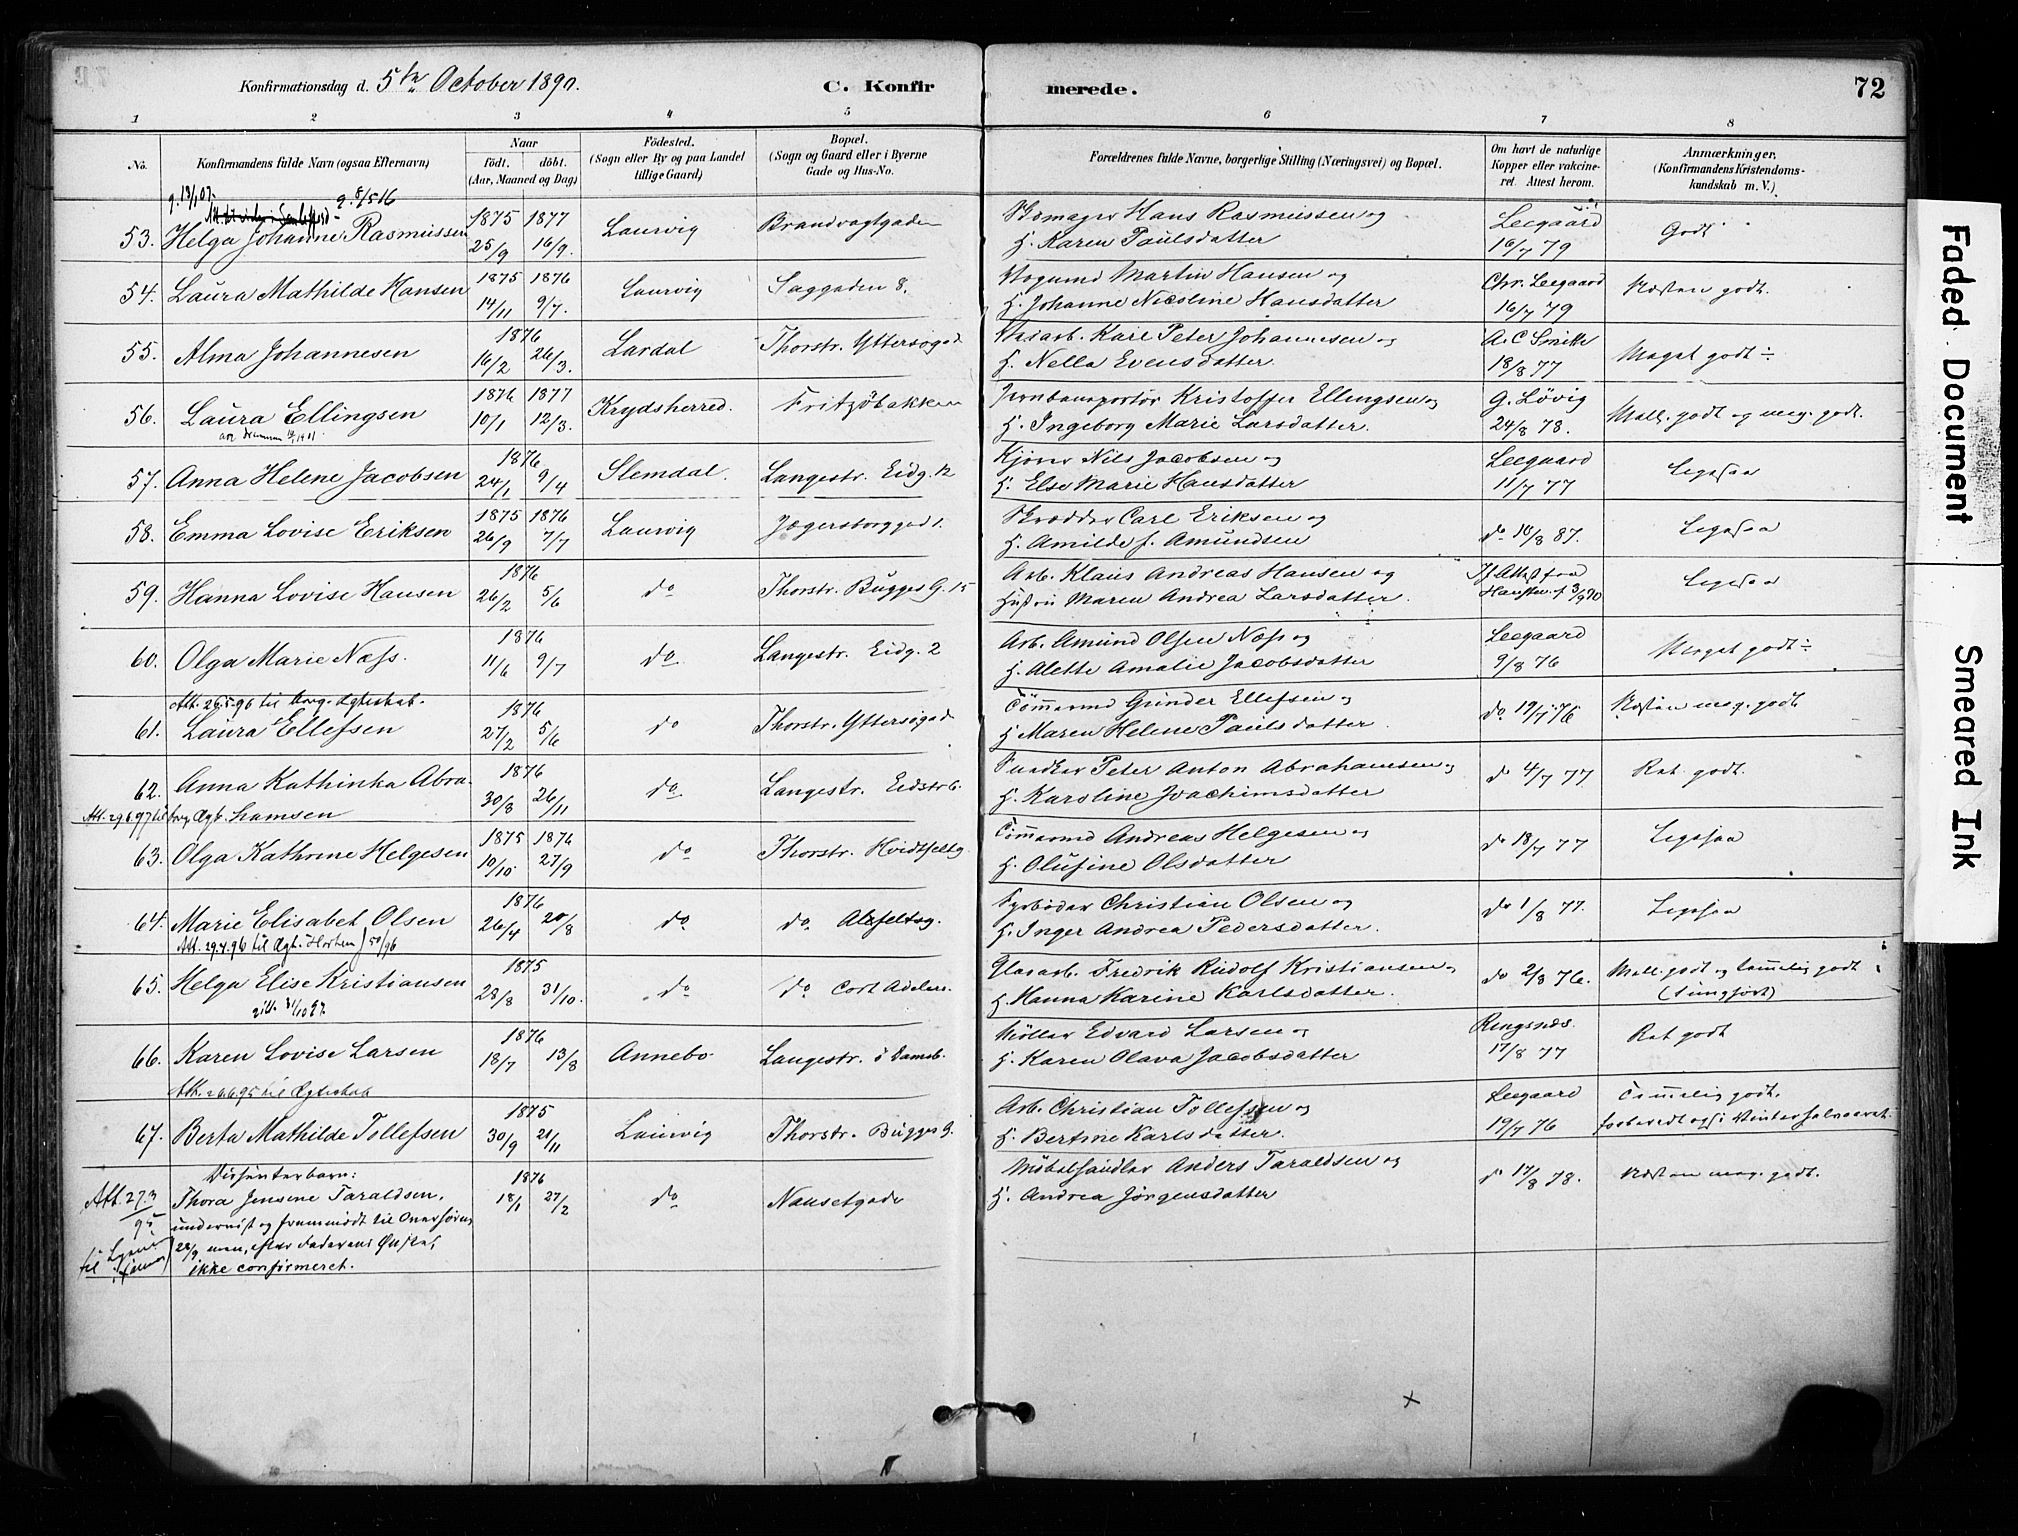 Konfirmationsdag d. 5te October 1890. C. Konfirmerede. 72
1 2 3 4 5 6 7 8
No. Konfirmandens fulde Navn (ogsaa Efternavn) Naar födt. döbt. (Aar, Maaned og Dag) Födested. (Sogn eller By og paa Landet tillige Gaard) Bopæl. (Sogn og Gaard eller i Byerne Gade og Hus-No. Forældrenes fulde Navne, borgerlige Stilling (Næringsvei) og Bopæl. Om havt de naturlige Kopper eller vakcineret. Attest herom. Anmærkninger. (Konfirmandens Kristendomskundskab m. V.)
g. 13/1 07. g. 5/5 16
53. Helga Johanne Rasmussen 1875 25/9 1877 16/9. Laurvig Brandvagtgaden Skomager Hans Rasmussen og
H. Karen Paulsdatter Leegaard 16/7 79 Godt
54. Laura Mathilde Hansen 1875 14/11 1876 9/7. Laurvig Saggaden 8. Martin Hansen og
H. Johanne Nicoline Hansdatter Chr. Leegaard 16/7 79 Næsten godt.
55. Alma Johannesen 1876 16/2 26/3. Lardal Thorstr. Yttersøgad Karl Peter Johannesen og
H. Nella Evensdatter A. C Smith 18/8 77 Meget godt ÷
56. Laura Ellingsen 1876 10/1 1877 12/3. Krydsherred. Fritzöbakken Kristoffer Ellingsen og
H. Ingeborg Marie Larsdatter. G. Lövig 24/8 78. Mell. godt og meg. godt.
57. Anna Helene Jacobsen 1876 24/1 9/4 Slemdal. Langestr. Eidg. 12 Nils Jacobsen og
H. Else Marie Hansdatter Leegaard 11/7 77 Ligesaa
58. Emma Lovise Eriksen 1875 26/9 1876 7/7 Laurvig Jægersborggad 1. Skrædder Carl Eriksen og
H. Amilde f. Amundsen do 16/8 87. Ligesaa
59. Hanna Lovise Hansen 1876 26/2 5/6 do Thorstr. Bugges G. 15 Arb. Klaus Andreas Hansen og
Hustru Maren Andrea Larsdatter. If. Attest fraa 3/9 90 Ligesaa
60. Olga Marie Næss. 1876 11/6 9/7 do Langestr. Eidg. 2 Arb. Amund Olsen Næss og
H. Alette Amalie Jacobsdatter Leegaard 9/8 76 Meget godt ÷
Att. 26.5.96 til borg. Ægteskab.
61. Laura Ellefsen 1876 27/2 5/6 do Thorstr. Yttersøgad Tömmermd Gunder Ellefsen og
H Maren Helene Paulsdatter do 19/7 76 Næsten meg. godt
62. Anna Kathinka Abra- 1876 30/8 26/11 do Langestr. Eidstr 6. Peter Anton Abrahamsen og
Att. 29.6.97 til borg. Ægt. hamsen H. Karoline Joachimsdatter do 4/7 77. Ret godt.
63. Olga Kathrine Helgesen 1875 10/10 1876 27/9 do Thorstr. Hvidtfeltg. Tömmermd Andreas Helgesen og
H. Olufine Olsdatter do 18/7 77 Ligesaa
64. Marie Elisabet Olsen 1876 26/4 20/8 do do Alefeltsg. Fyrböder Christian Olsen og
Att. 29.4.96 til Ægt. Horten H. Inger Andrea Pedersdatter. do 1/8 77. Ligesaa
65. Helga Elise Kristiansen 1875 28/8 31/10. do do Cort Adelers. Glasarb. Fredrik Rudolf Kristiansen og
H. Hanna Karine Karlsdatter. do 2/8 76. Mell. godt og temmelig godt
(tungført)
66. Karen Lovise Larsen 1876 18/7 13/8 Annebo Langestr. Möller Edvard Larsen og
H. Karen Olava Jacobsdatter Ringsnæs. 17/8 77 Ret godt
Att. 26.6.95 til Ægteskab
67. Berta Mathilde Tollefsen 1875 30/9 21/11 Laurvig Thorstr. Bugges g. Arb. Christian Tollefsen og
H. Bertine Karlsdatter. Leegaard 19/7 76 Temmelig godt.
forberedt ogs i Vinterhalvaaret.
Dissenterbarn:
Att. 27.3 95 til Thora Jensine Taraldsen, 1876 18/1 27/2 do Nansetgade Möbelhandler Anders Taraldsen og
H. Andrea Jörgensdatter do 17/8 78. Næsten meg. godt.
undervist og fremmödt til
22/9 men, efter Faderens Ønske,
ikke confirmeret.
Faded Document
Smeared Ink